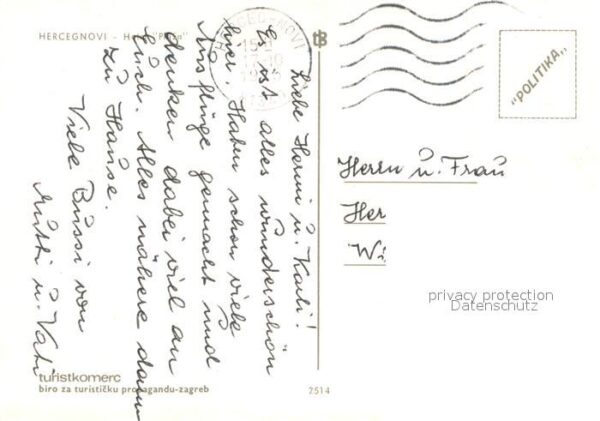 HERCEGNOVI - Hotel "Plaža"
HERCEGNOVI
Liebe Henni u. Karli!
Es ist alles wunderschön
hier. Haben schon viele
Ausflüge gemacht und
denken dabei viel an
Euch. Alles nähere dann
zu Hause.
Viele Bussi von
Mutti u. Vati
"POLITIKA"
Herrn u. Frau
Her
Wi
privacy protection
Datenschutz
turistkomerc
biro za turističku propagandu-zagreb
2514